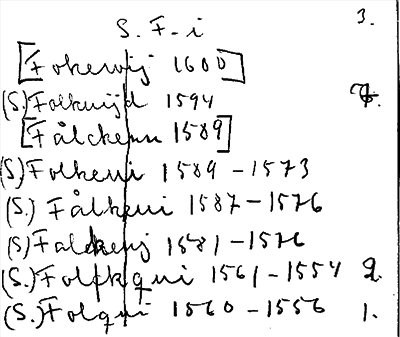 S. F-i 3.
[Fokewij 1600]
(S.) Folkuijd 1594
[Fålckenu 1589]
(S) Folkeui 1589-1573
(S.) Fålkeui 1587-1576
(S) 1581-1576
(S.) 1561-1554 2.
(S.) Folqui 1560-1556 1.